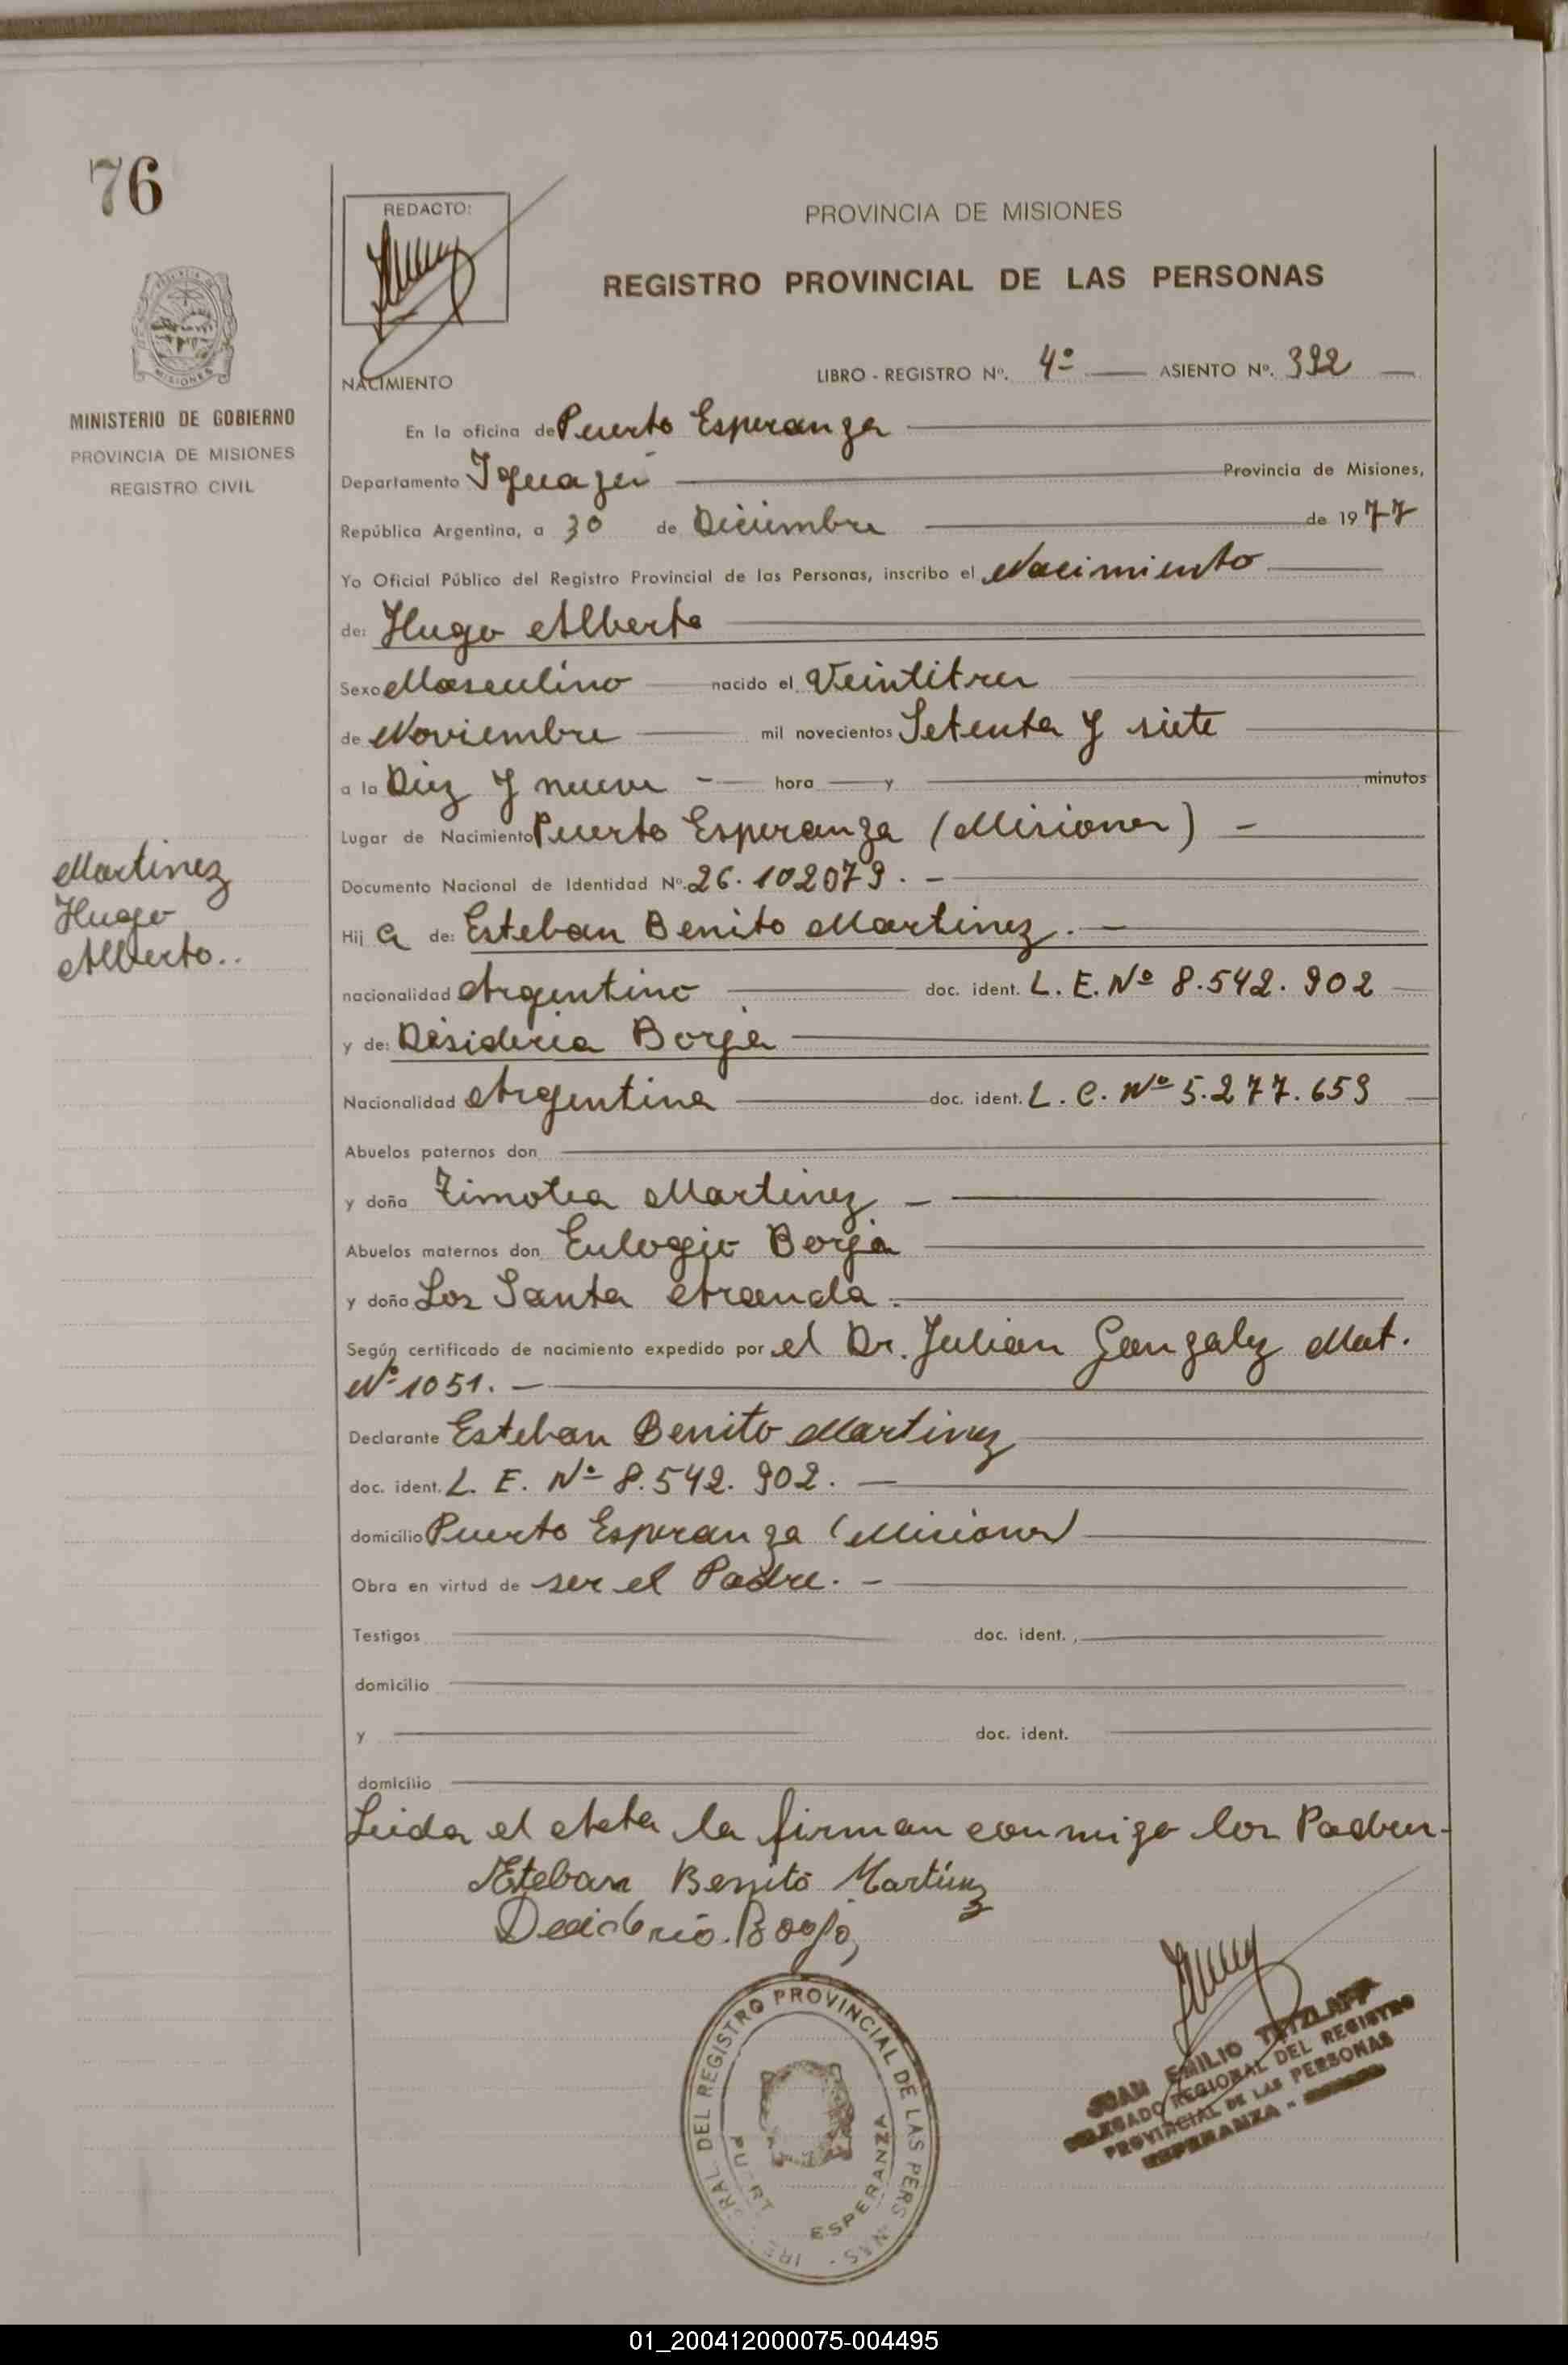 76
REDACTO:
PROVINCIA DE MISIONES
REGISTRO PROVINCIAL DE LAS PERSONAS
MISIONES
MINISTERIO DE GOBIERNO
PROVINCIA DE MISIONES
REGISTRO CIVIL
NACIMIENTO
LIBRO - REGISTRO Nº. 4º ASIENTO Nº. 392
En la oficina de Puerto Esperanza
Departamento Iguazú Provincia de Misiones,
República Argentina, a 30 de Diciembre de 1977
Yo Oficial Público del Registro Provincial de las Personas, inscribo el Nacimiento
de: Hugo Alberto
Sexo Masculino nacido el Veintitres
de Noviembre mil novecientos Setenta y siete
a la Diez y nueve - hora y minutos
Lugar de Nacimiento Puerto Esperanza (Misiones) -
Martinez
Hugo
Alberto..
Documento Nacional de Identidad Nº. 26.102079. -
Hij a de: Esteban Benito Martinez. -
nacionalidad Argentino doc. ident. L. E. Nº 8.542.902
y de: Desideria Borja
Nacionalidad Argentina doc. ident. L. C. Nº 5.277.659
Abuelos paternos don
y doña Timotea Martinez -
Abuelos maternos don Eulogio Borja
y doña Los Santa Aranda.
Según certificado de nacimiento expedido por el Dr. Julian Gonzalez Mat.
Nº 1051. -
Declarante Esteban Benito Martinez
doc. ident. L. E. Nº 8.542.902.
domicilio Puerto Esperanza (Misiones)
Obra en virtud de ser el Padre. -
Testigos doc. ident.
domicilio
y doc. ident.
domicilio
Leida el Acta la firman conmigo los Padres-
Esteban Benito Martínez
Borja
DEL REGISTRO PROVINCIAL DE LAS PERSONAS
ESPERANZA
JUAN EMILIO TETZLAFF
DELEGADO REGIONAL DEL REGISTRO
PROVINCIAL DE LAS PERSONAS
ESPERANZA -
01_200412000075-004495